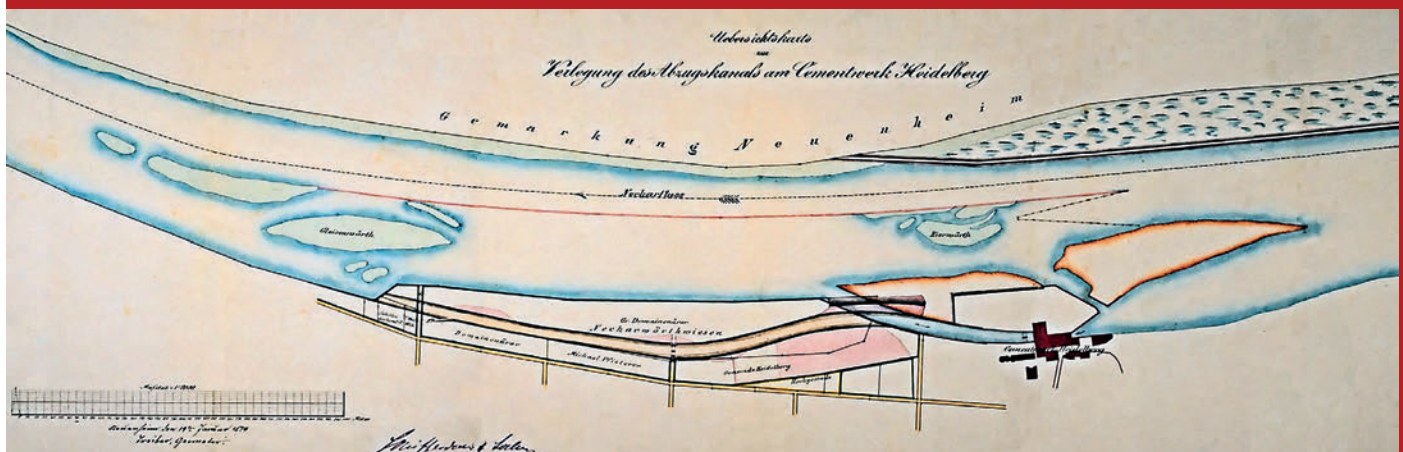 Uebersichtskarte
zur
Verlegung des Abzugskanals am Cementwerk Heidelberg
Gemarkung Neuenheim
Neckarfluss
Gleisenwörth
Eierwörth
Gr. Domainenärar
Neckarwörthwiesen
Domainenärar
Michael Pfisterer
Gemeinde Heidelberg
Cementwerk Heidelberg
Maßstab
Neuenheim den 19ten Januar 1874
Treiber, Geometer.